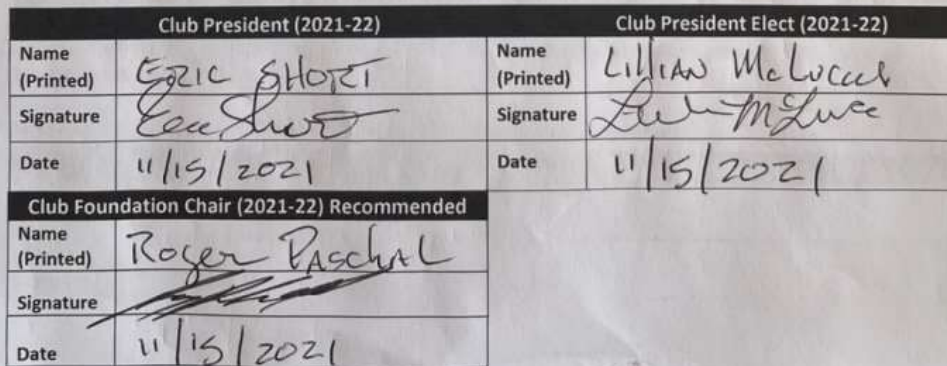 Club President (2021-22)
Name (Printed) ERIC SHORT
Signature Eric Short
Date 11/15/2021
Club President Elect (2021-22)
Name (Printed) Lillian McLucas
Signature
Date 11/15/2021
Club Foundation Chair (2021-22) Recommended
Name (Printed) Roger PASchAL
Signature
Date 11/15/2021